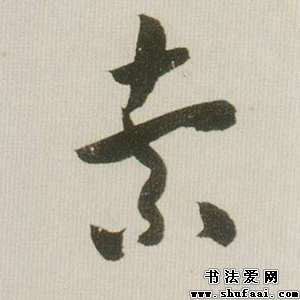 素
书法爱网
www.shufaai.com